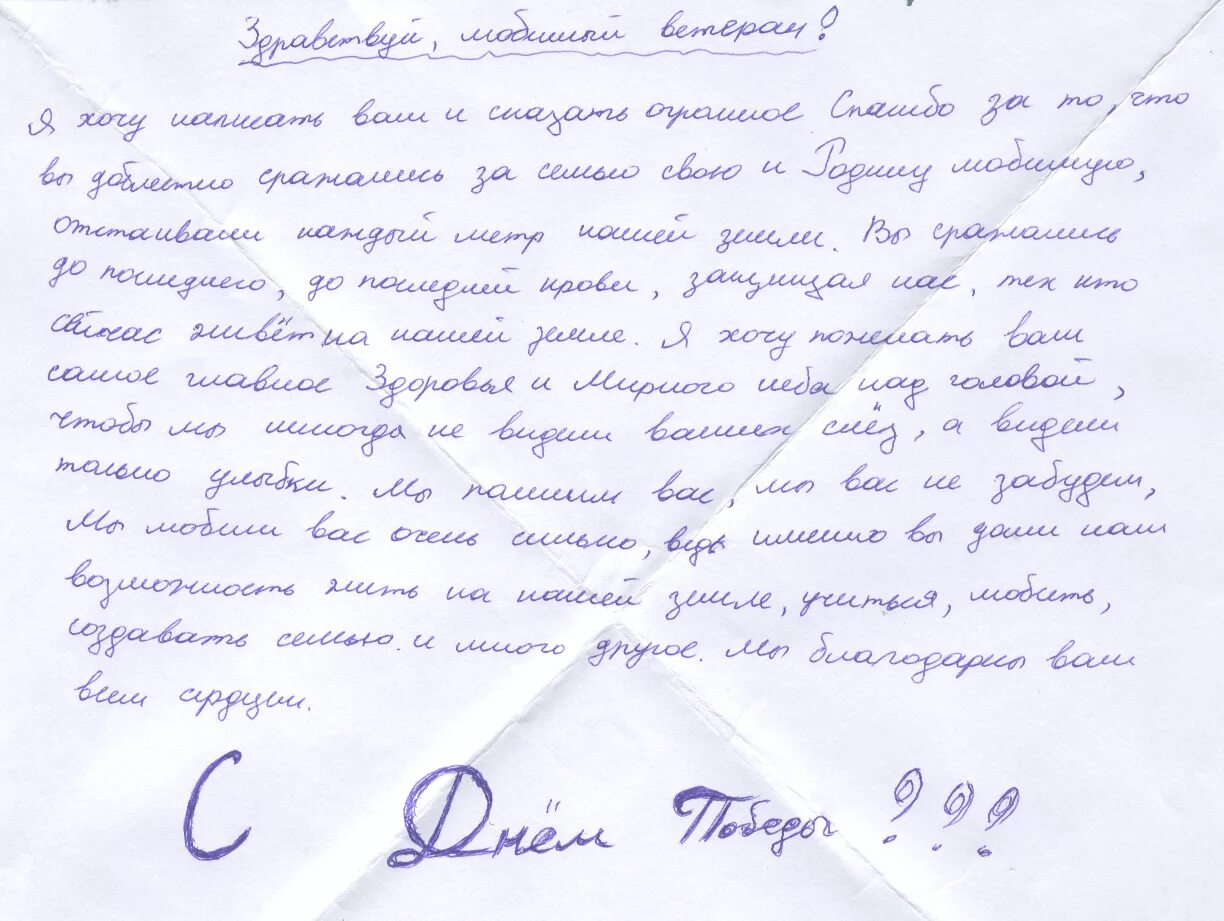 Здравствуй, любимый ветеран!
Я хочу написать вам и сказать огромное Спасибо за то, что
вы доблестно сражались за семью свою и Родину любимую,
отстаивали каждый метр нашей земли. Вы сражались
до последнего, до последней крови, защищая нас, тех кто
сейчас живёт на нашей земле. Я хочу пожелать вам
самое главное Здоровья и Мирного неба над головой,
чтобы мы никогда не видели ваших слёз, а видели
только улыбки. Мы помним вас, мы вас не забудем,
Мы любим вас очень сильно, ведь именно вы дали нам
возможность жить на нашей земле, учиться, любить,
создавать семью. и много другое. Мы благодарны вам
всем сердцем.
С Днём Победы!!!